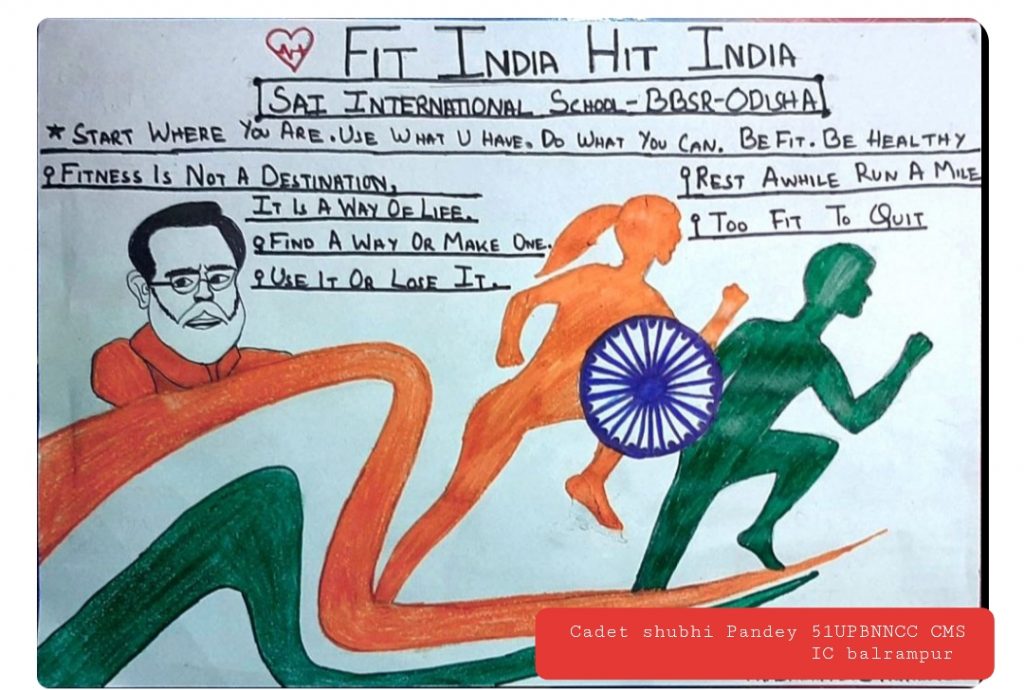 FIT INDIA HIT INDIA
SAI INTERNATIONAL SCHOOL-BBSR-ODISHA
START WHERE YOU ARE.USE WHAT U HAVE. DO WHAT YOU CAN. BE FIT. BE HEALTHY
FITNESS IS NOT A DESTINATION,
IT IS A WAY OF LIFE.
FIND A WAY OR MAKE ONE.
USE IT OR LOSE IT.
REST AWHILE RUN A MILE
TOO FIT TO QUIT
Cadet shubhi Pandey 51UPBNNCC CMS
IC balrampur